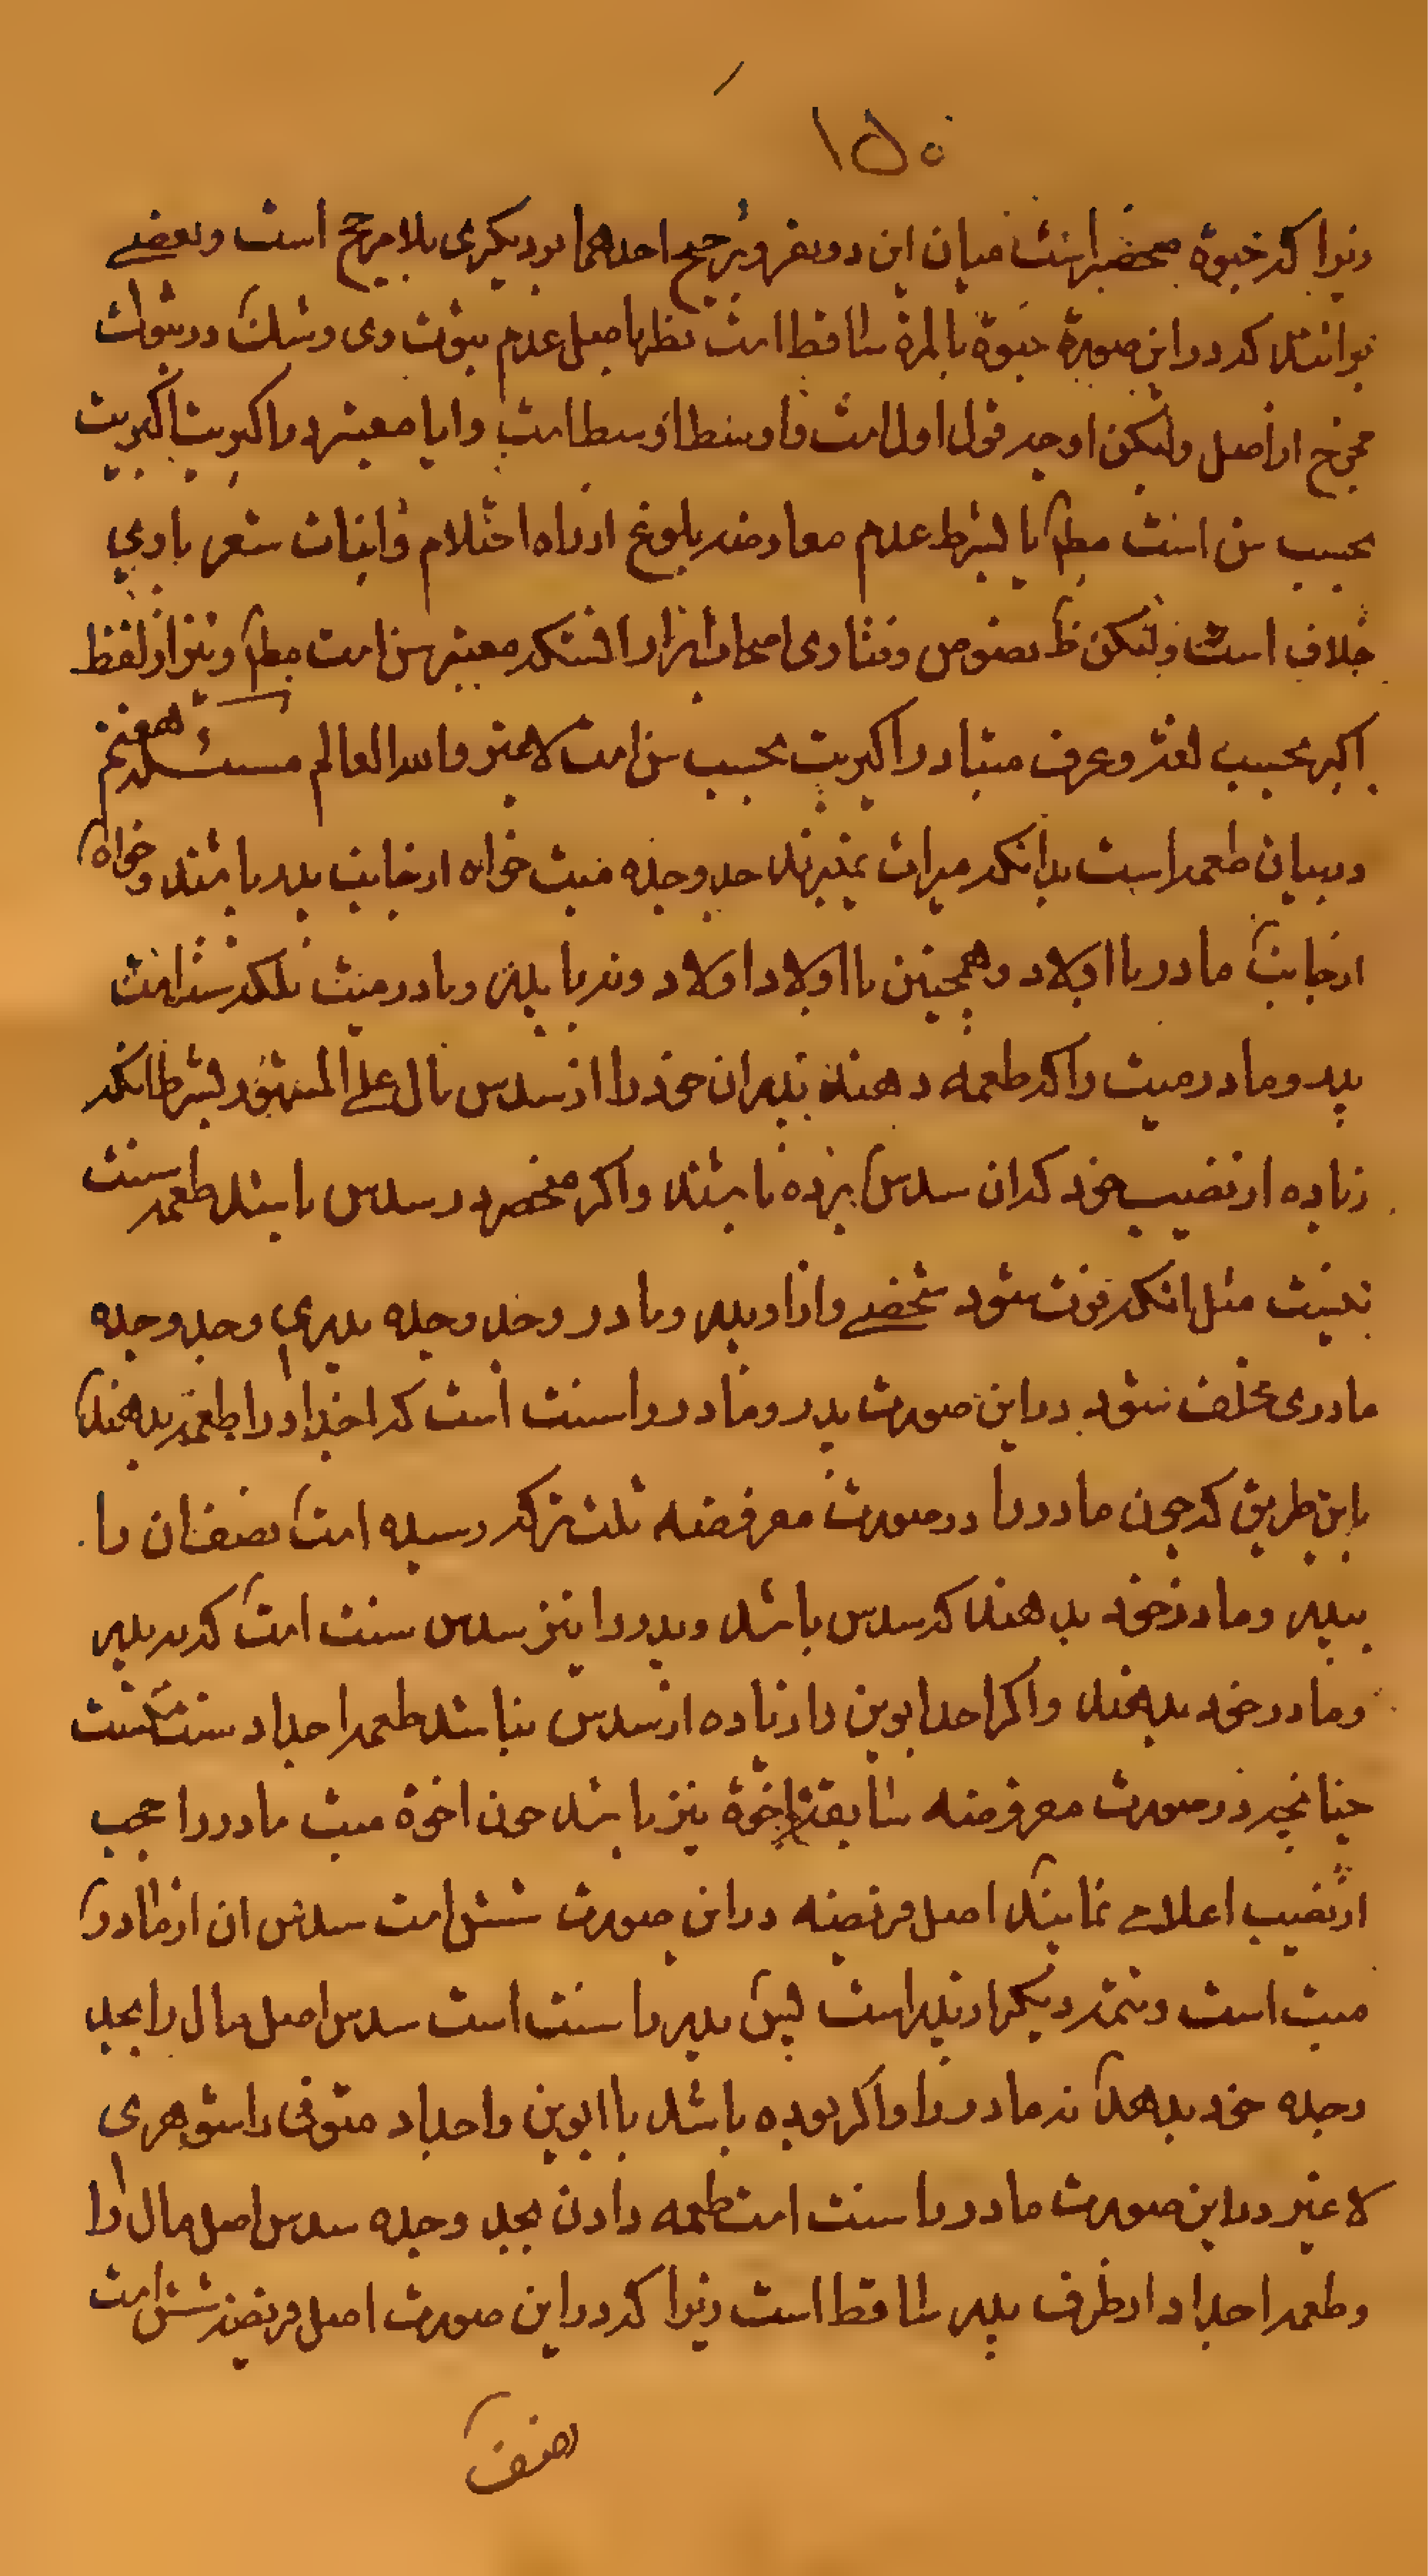 ۱۵۰
زیرا که حبوة منحصر است میان این دو نفر و ترجیح احدهما بر دیکری بلا مرجح است و بعضی
برانند که در این صورة حبوة بالمرة ساقط است نظر باصل عدم ثبوت وی و شک در ثبوت
مخرج از اصل ولیکن اوجه قول اول است و اوسط اوسط است و ایا معتبر در اکبریت اکبریت
بحسب سن است مطلقا یا بشرط عدم معارضه بلوغ از راه احتلام و انبات شعر با وی
خلاف است ولیکن ظ نصوص و فتاوی اصحاب ابرار انستکه معتبر سن است مطلقا و نیز از لفظ
اکبر بحسب لغت و عرف متبادر اکبریت بحسب سن است لا غیر والله العالم مسئله هفتم
در بیان طعمه است بدانکه میراث نمیبرند جد و جده میت خواه از جانب پدر باشند و خواه
از جانب مادر با اولاد و همچنین با اولاد اولاد و نه با پدر و مادر میت بلکه سنت است
پدر و مادر میت را که طعمه دهند پدران خود را از سدس مال علی المشهور بشرط انکه
زیاده از نصیب خود که ان سدس برده باشند و اکر منحصر در سدس باشد طعمه سنت
نیست مثل انکه فوت شود شخصی و از او پدر و مادر و جد و جده پدری و جد و جده
مادری مخلف شود در این صورت پدر و مادر را سنت است که اجداد را طعمه بدهند
باین طریق که چون مادر را در صورت معروضه ثلث ترکه رسیده است نصف ان را
بپدر و مادر خود بدهند که سدس باشد و پدر را نیز سدس سنت است که به پدر
و مادر خود بدهند و اکر احد ابوین را زیاده از سدس نباشد طعمه اجداد سنت نیست
چنانچه در صورت معروضه سابقه اخوة نیز باشد چون اخوة میت مادر را حجب
از نصیب اعلاء نمایند اصل فریضه در این صورت شش است سدس ان از مادر
میت است و تتمه دیکر از پدر است پس پدر را سنت است سدس اصل مال را بجد
و جده خود بدهد نه مادر را و اکر بوده باشد با ابوین و اجداد متوفی را شوهری
لا غیر در این صورت مادر را سنت است طعمه دادن بجد و جده سدس اصل مال را
و طعمه اجداد از طرف پدر ساقط است زیرا که در این صورت اصل فریضه شش است
نصف